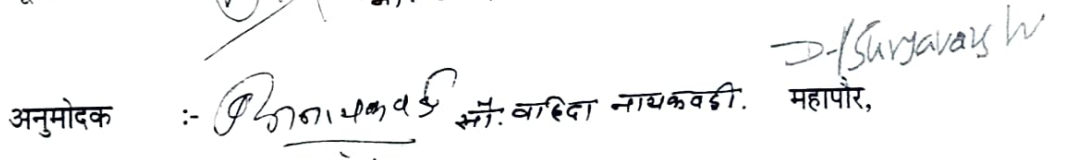 D-/Suryavanshi
अनुमोदक :- सौ. वाहिदा नायकवडी. महापौर,